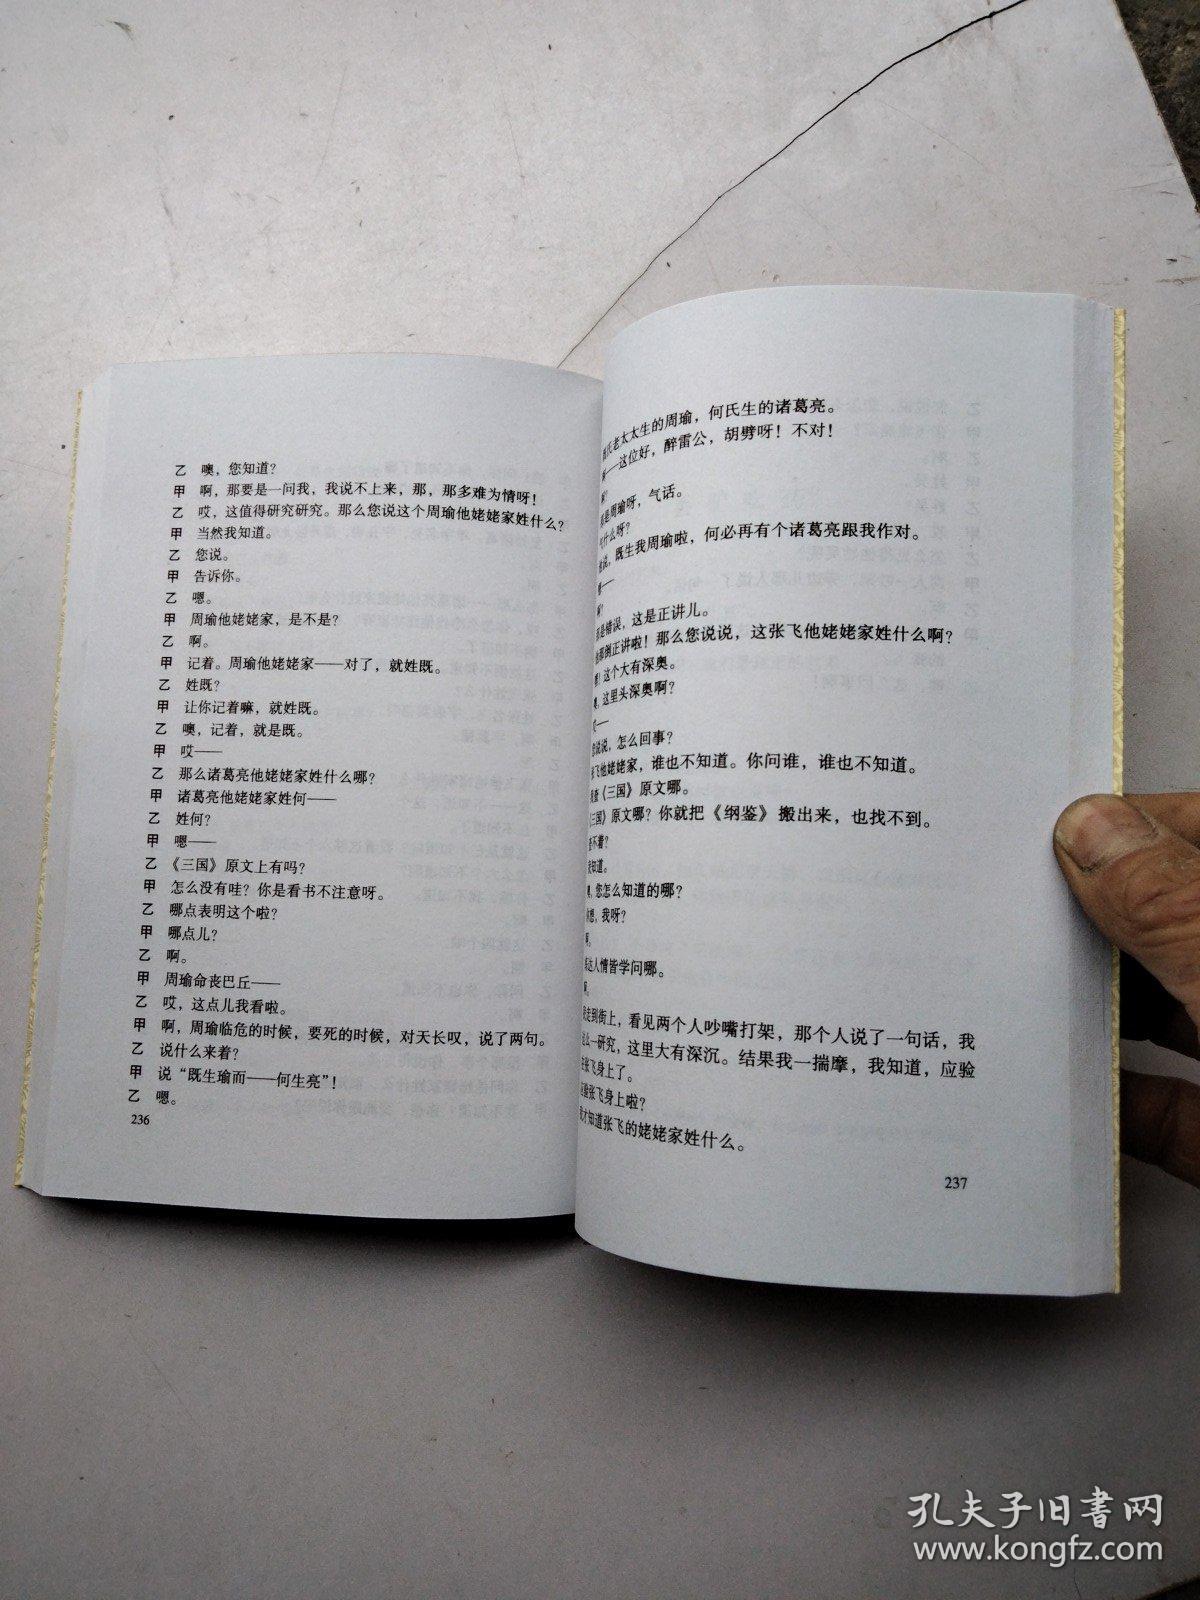 乙 噢，您知道？
甲 啊，那要是一问我，我说不上来，那，那多难为情呀！
乙 哎，这值得研究研究。那么您说这个周瑜他姥姥家姓什么？
甲 当然我知道。
乙 您说。
甲 告诉你。
乙 嗯。
甲 周瑜他姥姥家，是不是？
乙 啊。
甲 记着。周瑜他姥姥家——对了，就姓既。
乙 姓既？
甲 让你记着嘛，就姓既。
乙 噢，记着，就是既。
甲 哎——
乙 那么诸葛亮他姥姥家姓什么哪？
甲 诸葛亮他姥姥家姓何——
乙 姓何？
甲 嗯——
乙 《三国》原文上有吗？
甲 怎么没有哇？你是看书不注意呀。
乙 哪点表明这个啦？
甲 哪点儿？
乙 啊。
甲 周瑜命丧巴丘——
乙 哎，这点儿我看啦。
甲 啊，周瑜临危的时候，要死的时候，对天长叹，说了两句。
乙 说什么来着？
甲 说“既生瑜而——何生亮”！
乙 嗯。
236
氏老太太生的周瑜，何氏生的诸葛亮。
——这位好，醉雷公，胡劈呀！不对！
是周瑜呀，气话。
什么呀？
说，既生我周瑜啦，何必再有个诸葛亮跟我作对。
——
是错误，这是正讲儿。
那倒正讲啦！那么您说说，这张飞他姥姥家姓什么啊？
！这个大有深奥。
，这里头深奥啊？
——
说说，怎么回事？
飞他姥姥家，谁也不知道。你问谁，谁也不知道。
查《三国》原文哪。
三国》原文哪？你就把《纲鉴》搬出来，也找不到。
不着？
知道。
，您怎么知道的哪？
想，我呀？
达人情皆学问哪。
走到街上，看见两个人吵嘴打架，那个人说了一句话，我
么一研究，这里大有深沉。结果我一揣摩，我知道，应验
张飞身上了。
验张飞身上啦？
才知道张飞的姥姥家姓什么。
237
孔夫子旧书网
www.kongfz.com